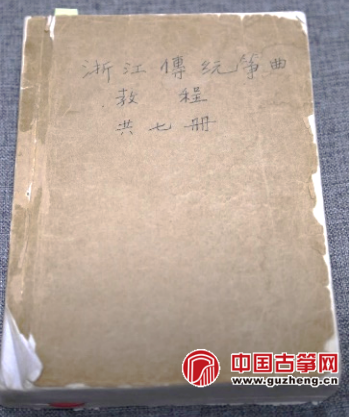 浙江傳統筝曲
教程
共七册
中国古筝网
www.guzheng.cn